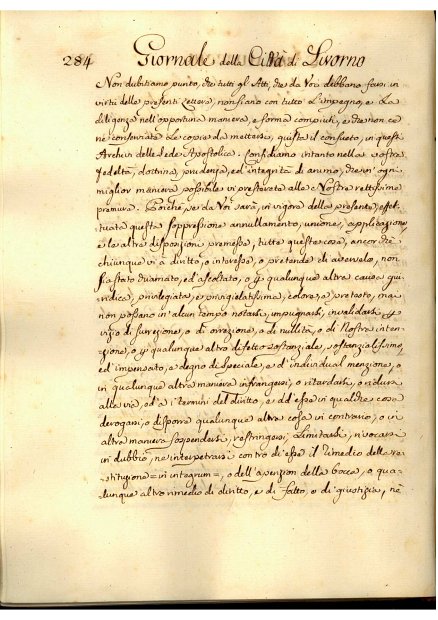 284 Giornale della Città di Livorno
Non dubitiamo punto, che tutti gl'Atti, che da Voi debbano farsi in
virtù delle presenti Lettere, non siano con tutto l'impegno, e La
diligenza nell'opportuna maniera, e forma compiuti, e che non ce
ne conserviate Le copie da mettersi, giusta il consueto, in questi
Archivi della Sede Apostolica. Confidiamo intanto nella vostra
Fedeltà, dottrina, prudenza, ed integrità di animo, che in ogni
miglior maniera possibile vi presterete alle Nostre rettissime
premure. Poichè, se da Voi sarà, in vigore della presente, effet-
tuata questa soppressione annullamento, unione, applicazione,
e le altre disposizioni premesse, tutte queste cose, ancorchè
chiunque vi à diritto, o interesse, o pretende di avervelo, non
sia stato chiamato, ed ascoltato, o p qualunque altra causa giu-
ridica, privilegiata, e privilegiatissima, colore, o pretesto, mai
non possano in alcun tempo notarsi, impugnarsi, invalidarsi p
vizio di surrezione, o di orrezione, o di nullità, o di Nostra inten-
zione, o p qualunque altro difetto sostanziale, sostanzialissimo,
ed impensato, e degno di speciale, e d'individual menzione, o
in qualunque altra maniera infrangersi, o ritardarsi, o ridursi
alla via, ed a i termini del diritto, e ad esse in qualche cosa
derogarsi, o disporsi qualunque altra cosa in contrario, o in
altra maniera sospendersi, restringersi, Limitarsi, rivocarsi
in dubbio, nè interpetrarsi contro di esse il rimedio della re-
stituzione = in integrum =, o dell'aperizion della bocca, o qua-
lunque altro rimedio di diritto, e di fatto, o di giustizia, nè